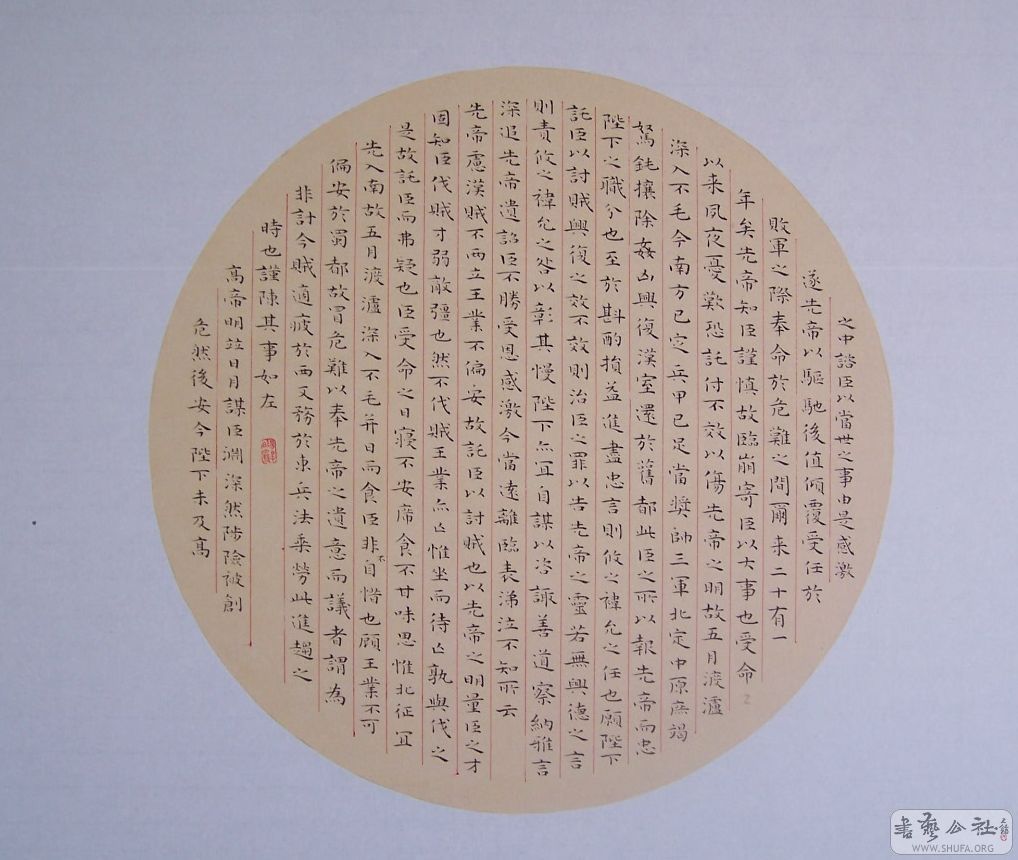 之中諮臣以當世之事由是感激
遂先帝以驅馳後值傾覆受任於
敗軍之際奉命於危難之間爾来二十有一
年矣先帝知臣謹慎故臨崩寄臣以大事也受命
以来夙夜憂歎恐託付不效以傷先帝之明故五月渡瀘
深入不毛今南方已定兵甲已足當獎帥三軍北定中原庶竭
駑鈍攘除姦凶興復漢室還於舊都此臣之所以報先帝而忠
陛下之職分也至於斟酌損益進盡忠言則攸之禕允之任也願陛下
託臣以討賊興復之效不效則治臣之罪以告先帝之靈若無興德之言
則責攸之禕允之咎以彰其慢陛下亦宜自謀以咨諏善道察納雅言
深追先帝遺詔臣不勝受恩感激今當遠離臨表涕泣不知所云
先帝慮漢賊不兩立王業不偏安故託臣以討賊也以先帝之明量臣之才
固知臣伐賊才弱敵彊也然不伐賊王業亦亡惟坐而待亡孰與伐之
是故託臣而弗疑也臣受命之日寝不安席食不甘味思惟北征宜
先入南故五月渡瀘深入不毛并日而食臣非不自惜也顧王業不可
偏安於蜀都故冒危難以奉先帝之遺意而議者謂為
非計今賊適疲於西又務於東兵法乘勞此進趨之
時也謹陳其事如左
高帝明並日月謀臣淵深然涉險被創
危然後安今陛下未及高
書藝公社
WWW.SHUFA.ORG